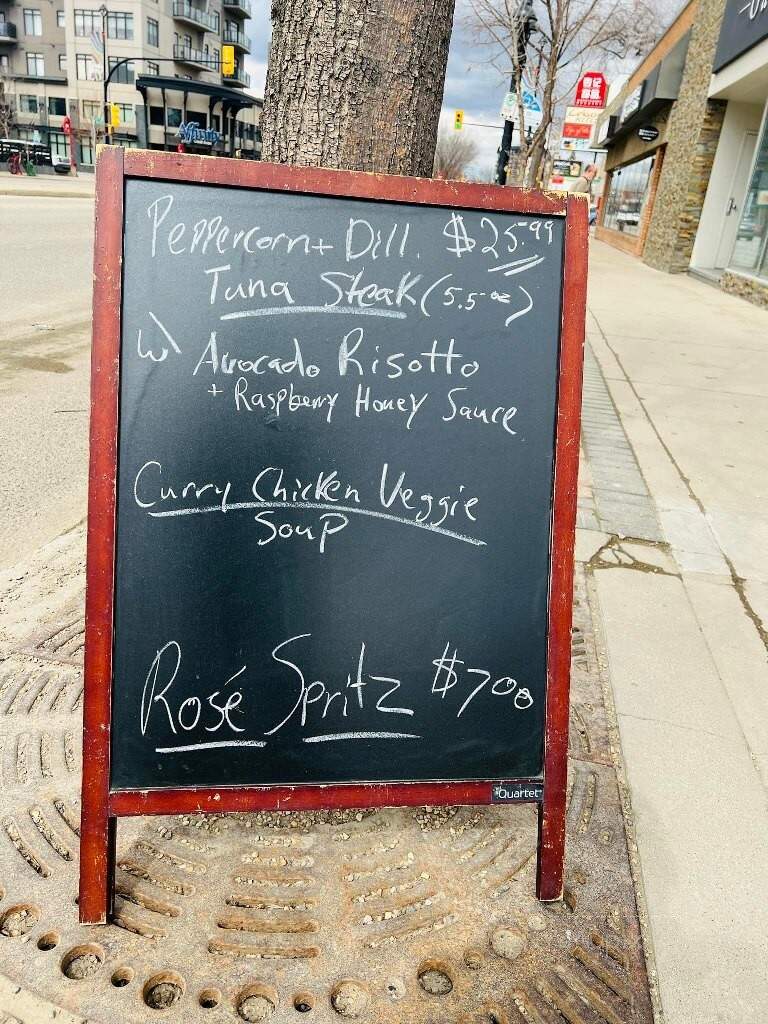 Peppercorn + Dill. $25.99
Tuna Steak (5.5 oz)
w\ Avocado Risotto
+ Raspberry Honey Sauce
Curry Chicken Veggie
Soup
Rosé Spritz $7.00
Quartet